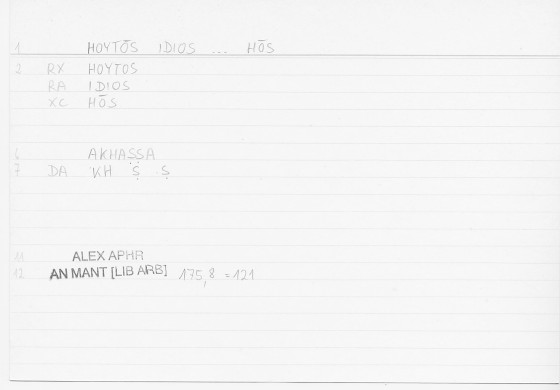 1 HOYTŌS IDIOS ... HŌS
2 RX HOYTOS
RA IDIOS
XC HŌS
6 AKHAṢṢA
7 DA KH Ṣ Ṣ
11 ALEX APHR
12 AN MANT [LIB ARB] 175,8 =121